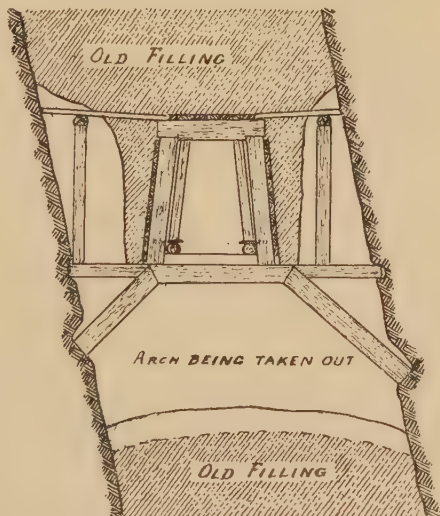 OLD FILLING
ARCH BEING TAKEN OUT
OLD FILLING